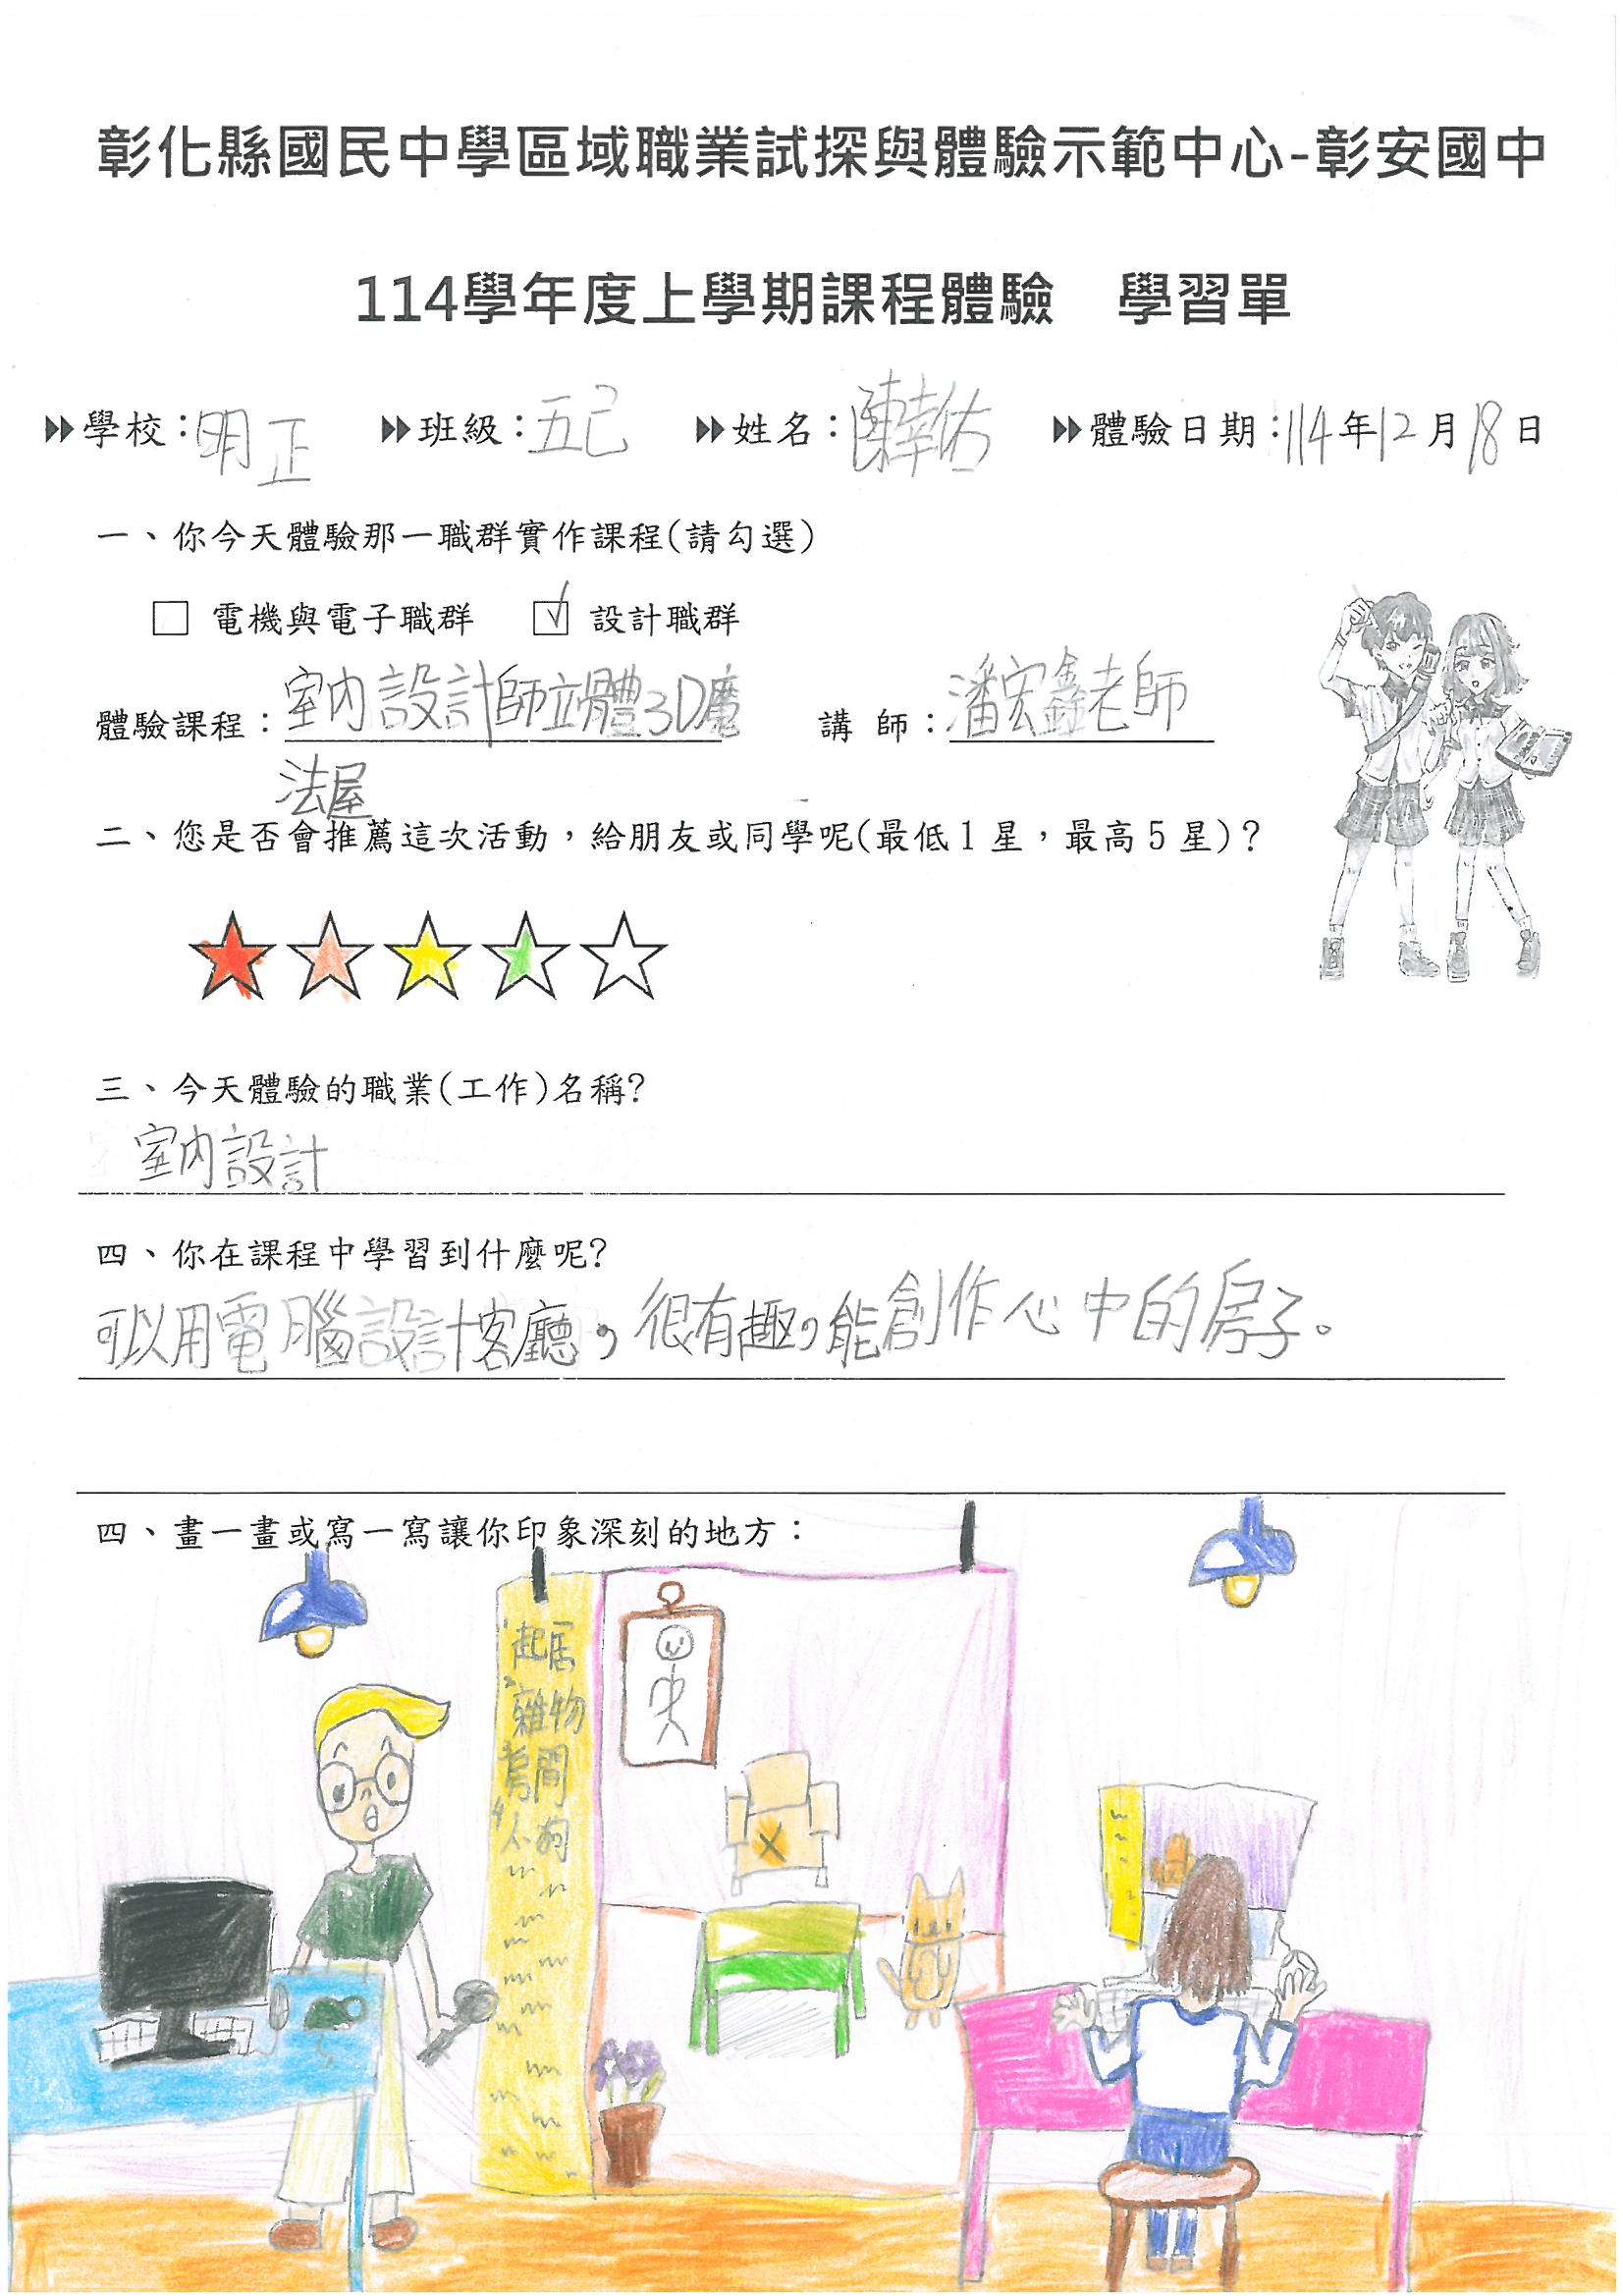 彰化縣國民中學區域職業試探與體驗示範中心-彰安國中
114學年度上學期課程體驗 學習單
學校：明正 班級：五己 姓名：陳幸佑 體驗日期：114年12月18日
一、你今天體驗那一職群實作課程(請勾選)
□ 電機與電子職群 ☑ 設計職群
體驗課程：室內設計師立體3D魔 講 師：潘宏鑫老師
法屋
二、您是否會推薦這次活動，給朋友或同學呢(最低1星，最高5星)？
三、今天體驗的職業(工作)名稱?
室內設計
四、你在課程中學習到什麼呢?
可以用電腦設計客廳，很有趣，能創作心中的房子。
四、畫一畫或寫一寫讓你印象深刻的地方：
起居
雜物
房間
人物